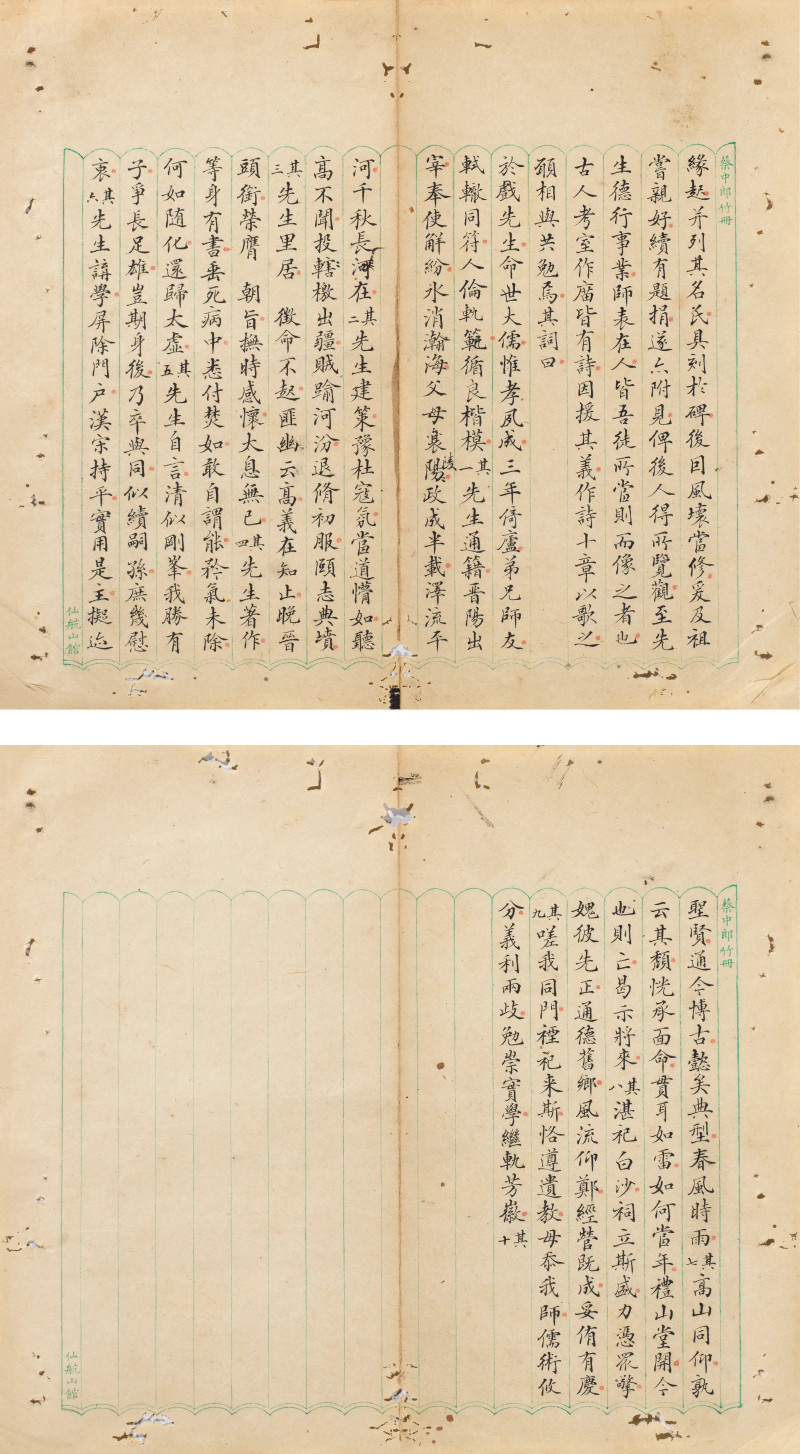 蔡中郎竹冊
緣起并列其名氏具刻於碑後回風壞當修爰及祖
嘗親好續有題捐遂亦附見俾後人得所覽觀至先
生德行事業師表在人皆吾徒所當則而像之者也
古人考室作廟皆有詩因援其義作詩十章以歌之
願相與共勉焉其詞曰
於戲先生命世大儒惟孝夙成三年倚廬弟兄師友
軾轍同符人倫軌範循良楷模其一先生通籍晉陽出
宰奉使解紛冰消瀚海父母襄陵政成半載澤流平
河千秋長在其二先生建策豫杜寇氛當道懵如聽
高不聞投轄檄出疆賊踰河汾退脩初服頤志典墳
其三先生里居 徵命不起匪幽云高義在知止晚晉
頭銜榮膺 朝旨撫時感懷太息無已其四先生著作
等身有書垂死病中悉付焚如敢自謂能矜氣未除
何如隨化還歸太虛其五先生自言清似剛峯我勝有
子爭長足雄豈期身後乃卒與同似續嗣孫庶幾慰
衷其六先生講學屏除門戶漢宋持平實用是主擬迹
仙航山館
蔡中郎竹冊
聖賢通今博古懿矣典型春風時雨其七高山同仰孰
云其頹恍承面命貫耳如雷如何當年禮山堂開今
也則亡曷示將來其八湛祀白沙祠立斯盛力憑眾擎
媿彼先正通德舊鄉風流仰鄭經營既成妥侑有慶
其九嗟我同門禋祀來斯恪遵遺教毋忝我師儒術攸
分義利兩歧勉崇實學繼軌芳徽其十
仙航山館